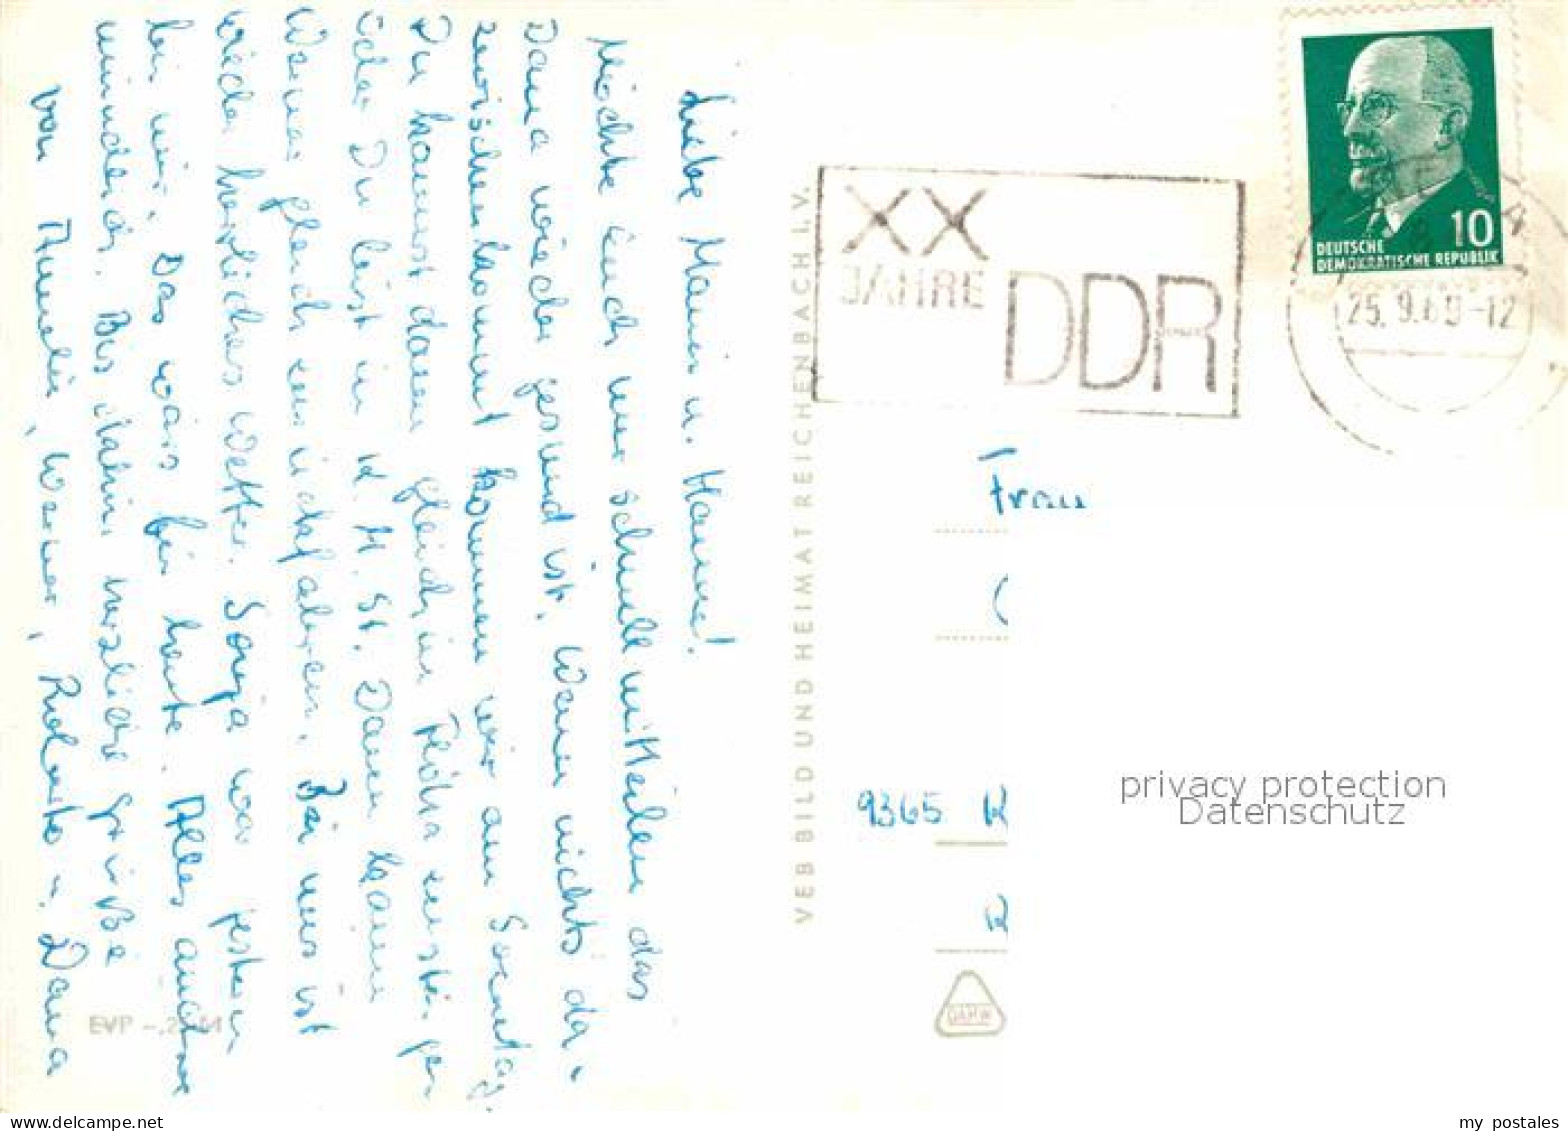 Liebe Mami u. Hanne!
Möchte Euch nur schnell mitteilen das
Dana wieder gesund ist. Wenn nichts da-
zwischenkommt kommen wir am Sonntag.
Du kannst dann gleich in Flöha einsteigen
oder Du bist in K. M. St. Dann kann
Werner gleich zurückfahren. Bei uns ist
wieder herrliches Wetter. Sonja war gestern
bei mir. Das wärs für heute. Alles andere
mündlich. Bis dahin herzliche Grüße
von Annelie, Werner, u. Dana
EVP -,
VEB BILD UND HEIMAT REICHENBACH I. V.
XX
JAHRE DDR
10
DEUTSCHE
DEMOKRATISCHE REPUBLIK
25. 9.69-12
Frau
9365 K
privacy protection
Datenschutz
my postales